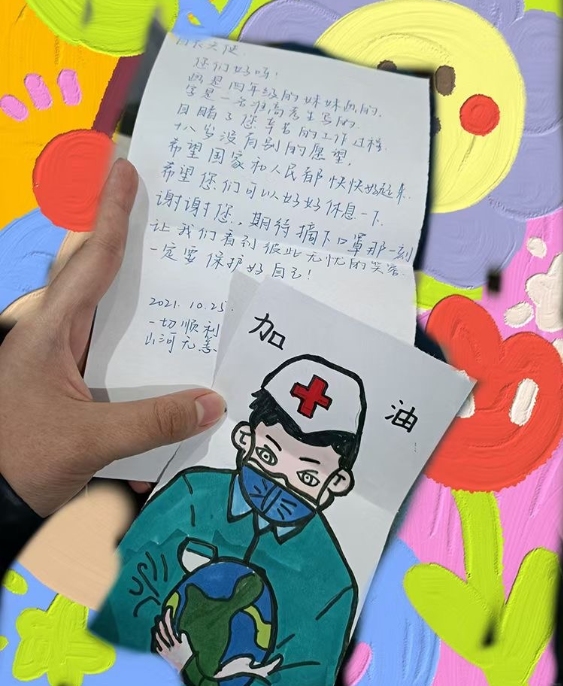 白衣天使
您们好呀!
画是四年级的妹妹画的,
字是一名准高考生写的.
目睹了您辛苦的工作过程.
十八岁没有别的愿望.
希望国家和人民都快快好起来.
希望您们可以好好休息一下.
谢谢您,期待摘下口罩那一刻
让我们看到彼此无忧的笑容
一定要保护好自己!
2021.10.25.
一切顺利
山河无恙
加油